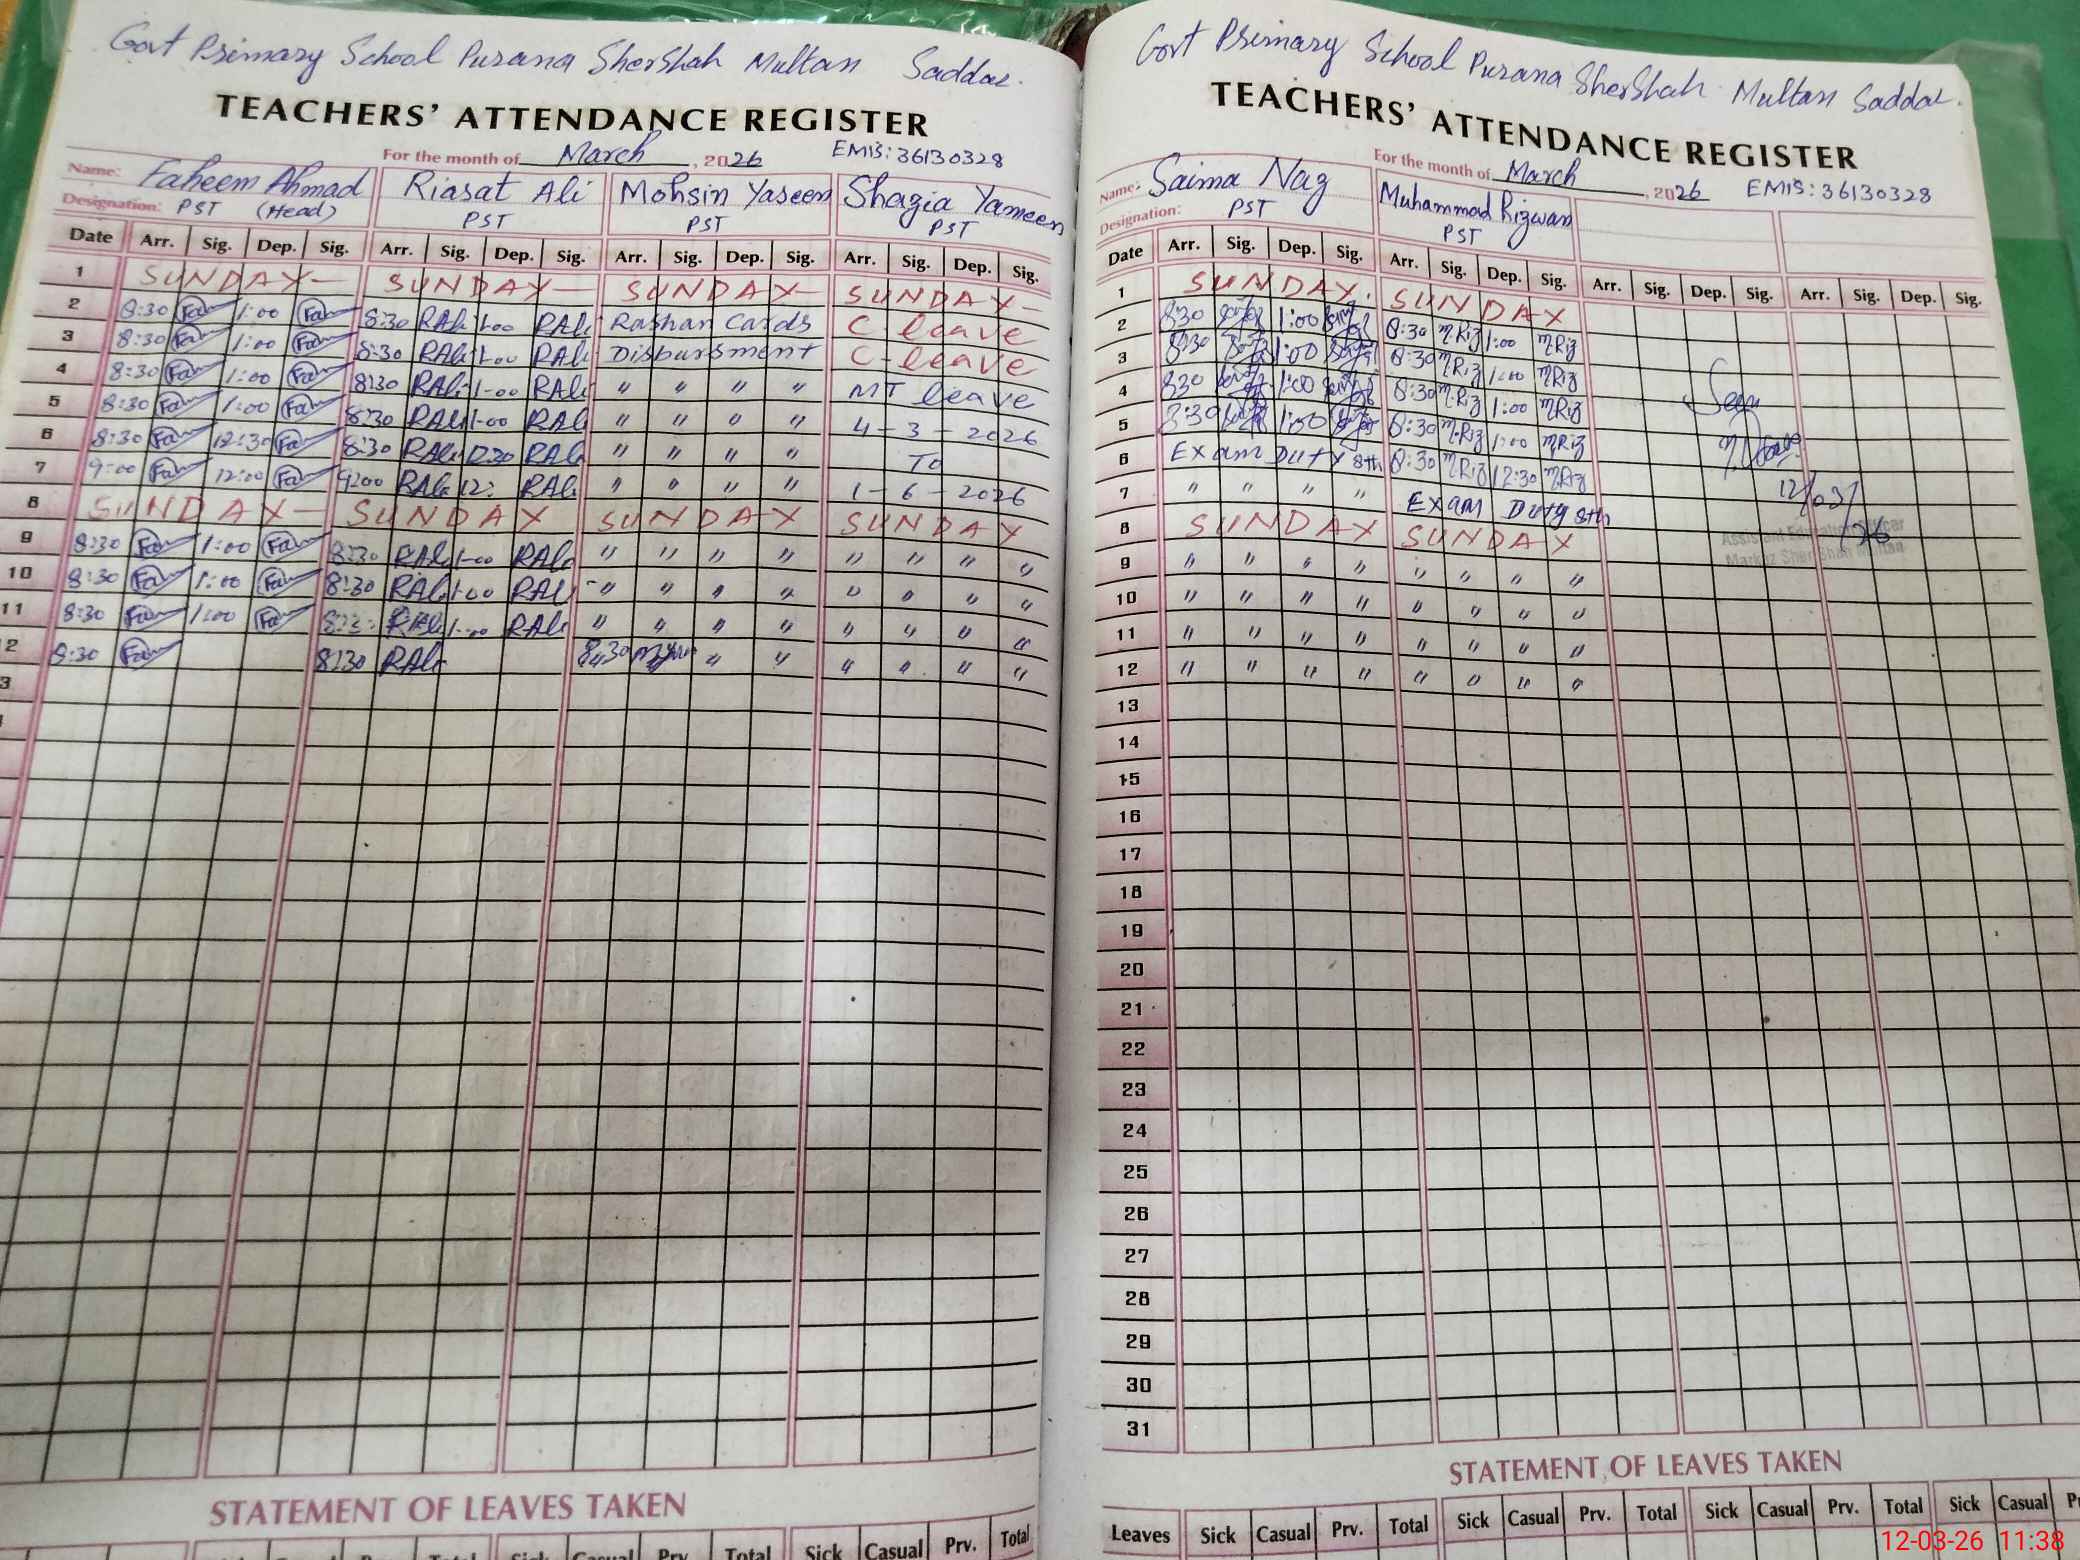 Govt Primary School Purana SherShah Multan Saddar.
TEACHERS' ATTENDANCE REGISTER
For the month of March, 2026 EMIS: 36130328
Name: Faheem Ahmad Riasat Ali Mohsin Yaseen Shazia Yameen
Designation: PST (Head) PST PST PST
Date Arr. Sig. Dep. Sig. Arr. Sig. Dep. Sig. Arr. Sig. Dep. Sig. Arr. Sig. Dep. Sig.
1 SUNDAY— SUNDAY— SUNDAY— SUNDAY—
2 8:30 Fa 1:00 Fa 8:30 RAli 1-00 RAli Rashan Cards C-leave
3 8:30 Fa 1:00 Fa 8:30 RAli 1-00 RAli Disbursment C-leave
4 8:30 Fa 1:00 Fa 8:30 RAli 1-00 RAli " " " " MT leave
5 8:30 Fa 1:00 Fa 8:30 RAli 1-00 RAli " " " " 4-3-2026
6 8:30 Fa 12:30 Fa 8:30 RAli 12:30 RAli " " " " To
7 9:00 Fa 12:00 Fa 9:00 RAli 12: RAli " " " " 1-6-2026
8 SUNDAY— SUNDAY SUNDAY SUNDAY
9 8:30 Fa 1:00 Fa 8:30 RAli 1-00 RAli " " " " " " " "
10 8:30 Fa 1:00 Fa 8:30 RAli 1-00 RAli " " " " " " " "
11 8:30 Fa 1:00 Fa 8:30 RAli 1-00 RAli " " " " " " " "
12 8:30 Fa 8:30 RAli 8:30 " " " " " "
3
STATEMENT OF LEAVES TAKEN
Sick Casual Prv. Total Sick Casual Prv. Total Sick Casual Prv. Total
Govt Primary School Purana SherShah Multan Saddar.
TEACHERS' ATTENDANCE REGISTER
For the month of March, 2026 EMIS: 36130328
Name: Saima Naz Muhammad Rizwan
Designation: PST PST
Date Arr. Sig. Dep. Sig. Arr. Sig. Dep. Sig. Arr. Sig. Dep. Sig. Arr. Sig. Dep. Sig.
1 SUNDAY. SUNDAY
2 8:30 1:00 8:30 M.Riz 1:00 MRiz
3 8:30 1:00 8:30 M.Riz 1:00 MRiz
4 8:30 1:00 8:30 M.Riz 1:00 MRiz Seen
5 8:30 1:00 8:30 M.Riz 1:00 MRiz
6 Exam Duty 8th 8:30 M.Riz 12:30 MRiz
7 " " " " Exam Duty 8th 12/03/26
8 SUNDAY SUNDAY
Assistant Education Officer
Markaz Sher Shah Multan
9 " " " " " " " "
10 " " " " " " " "
11 " " " " " " " "
12 " " " " " " " "
13
14
15
16
17
18
19
20
21
22
23
24
25
26
27
28
29
30
31
STATEMENT OF LEAVES TAKEN
Leaves Sick Casual Prv. Total Sick Casual Prv. Total Sick Casual Prv. Total Sick Casual
12-03-26 11:38